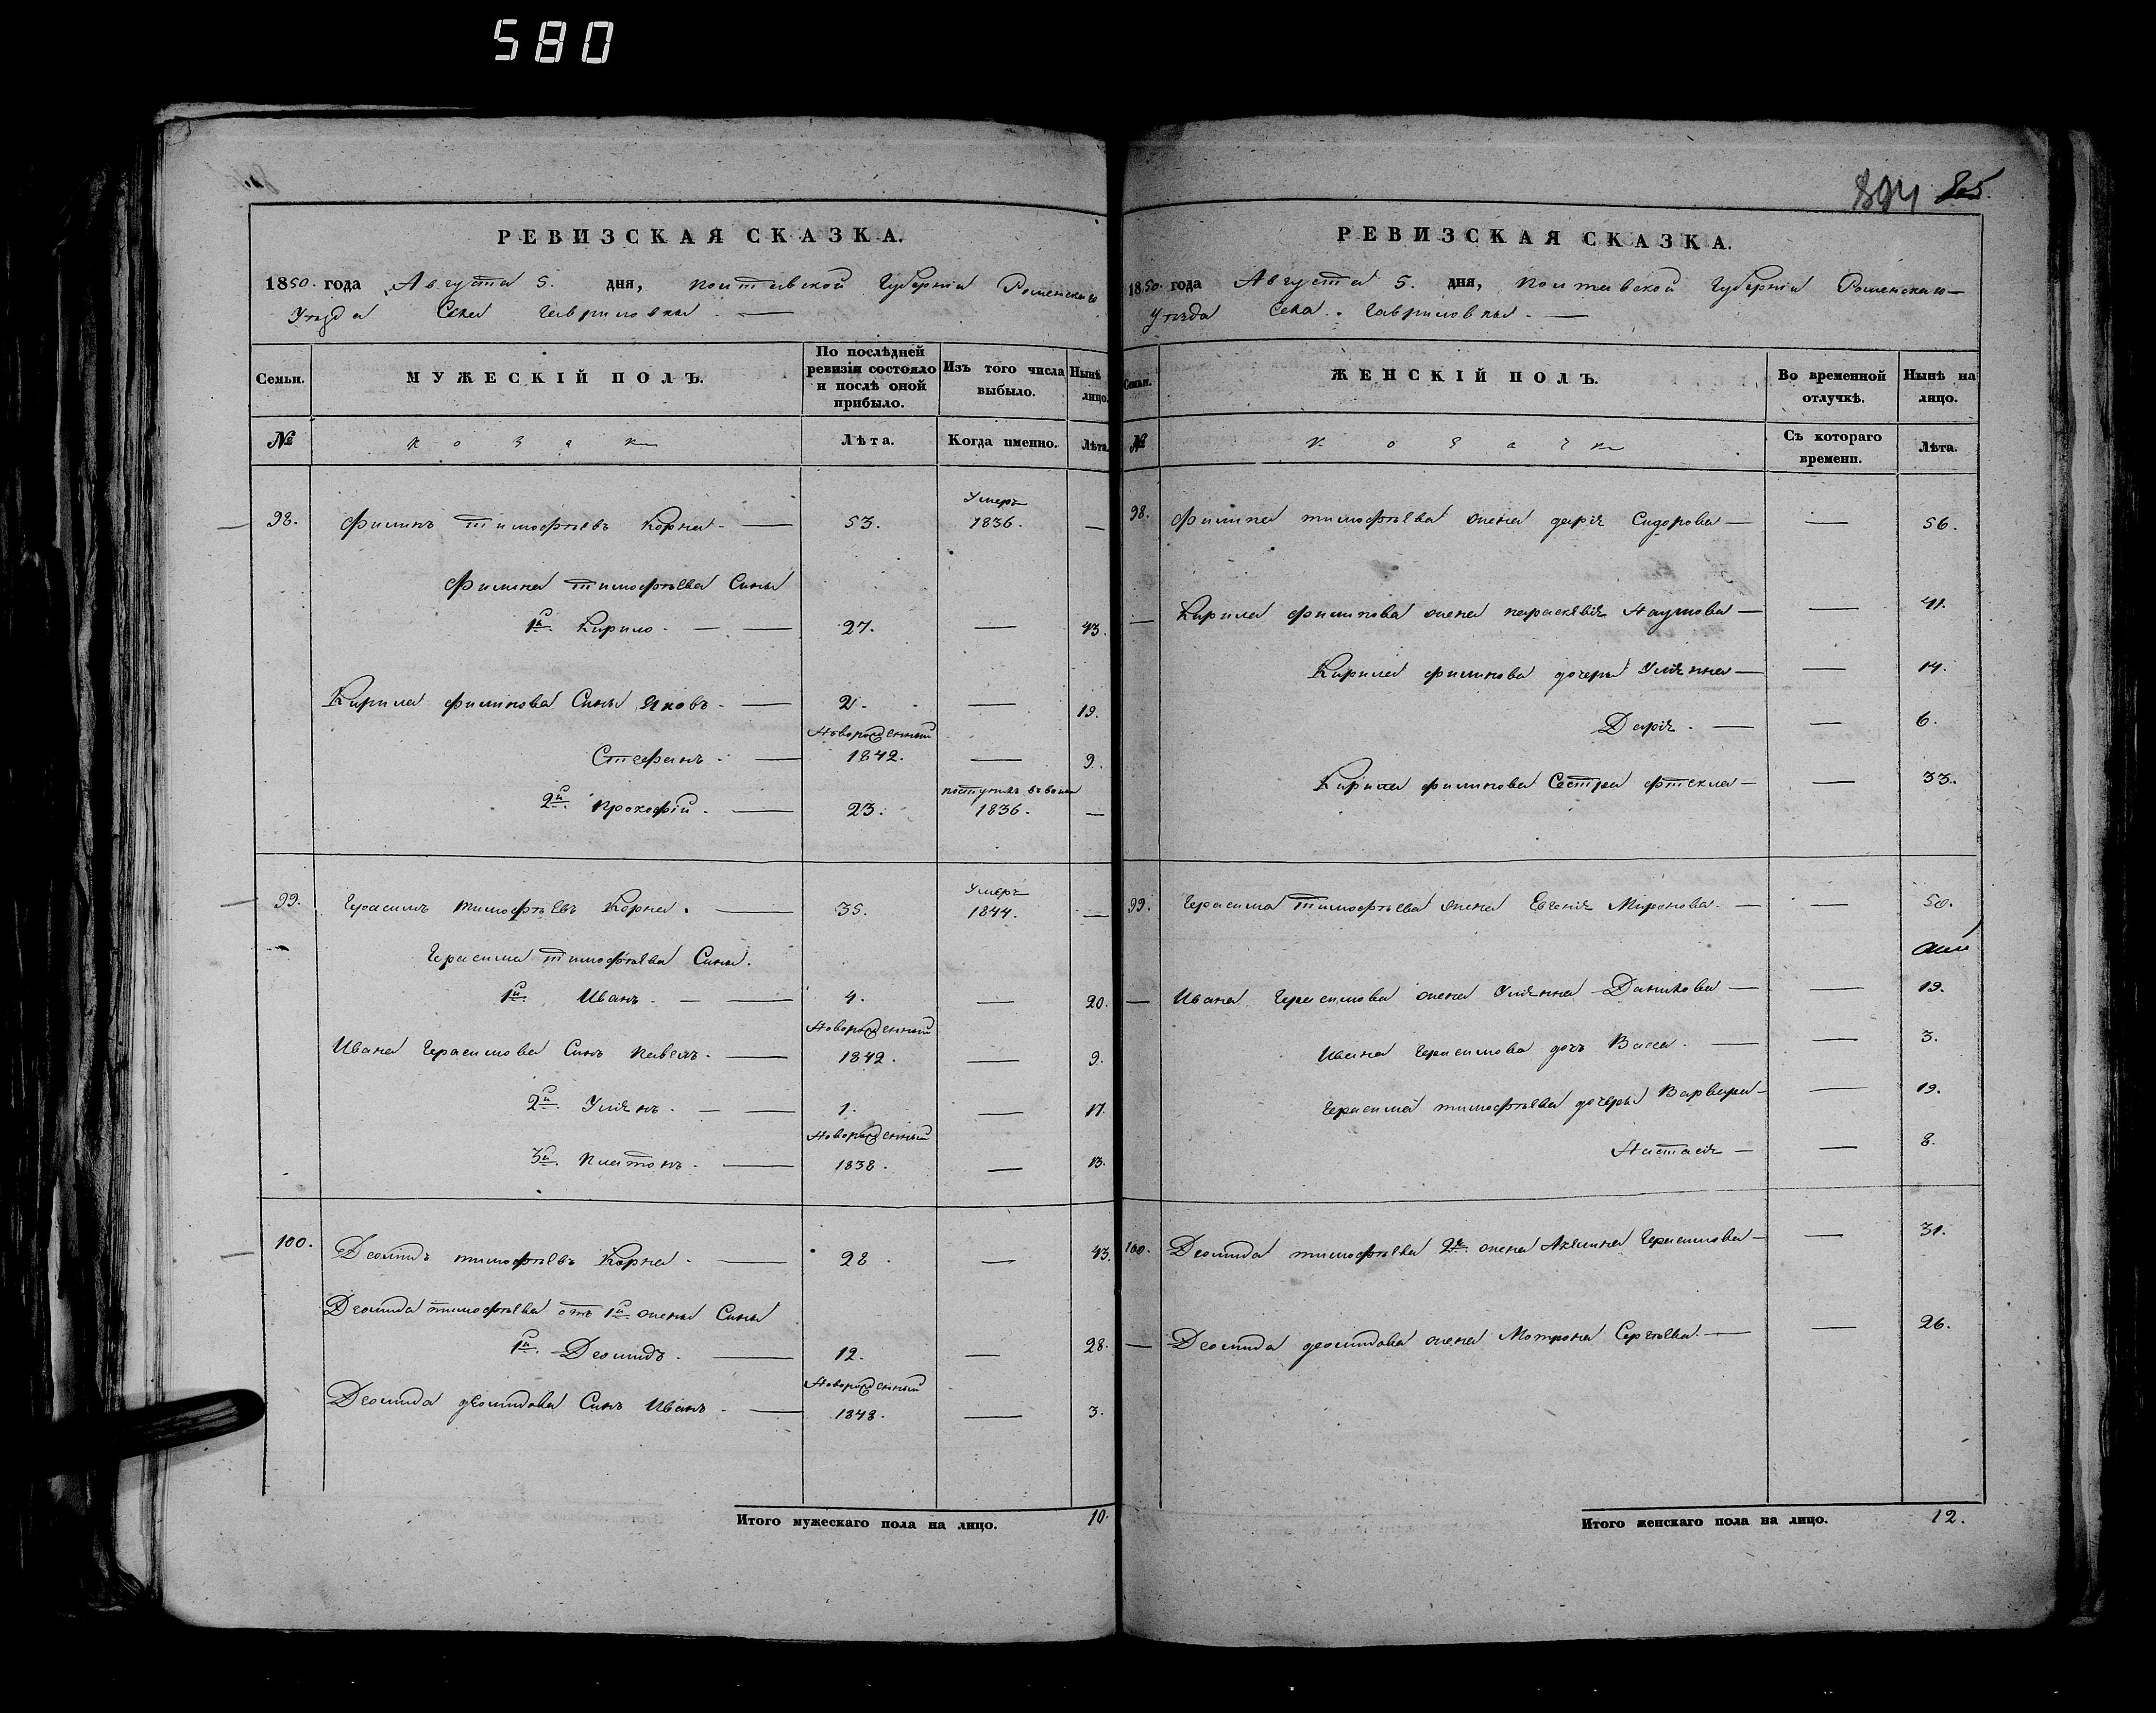 580
894 805.
РЕВИЗСКАЯ СКАЗКА.
1850. года Августа 5. дня, Полтавской Губерніи Роменскаго
Уезда Села Гавриловки. —
Семьи. МУЖЕСКІЙ ПОЛЪ. По послѣдней ревизіи состояло и послѣ оной прибыло. Изъ того числа выбыло. Нынѣ лицо.
№ козаки Лѣта. Когда именно. Лѣта.
98. Филипъ Тимофѣевъ Корна. — 53. Умеръ 1836. —
Филипа Тимофѣева Сины
1й. Кирило. — — 27. — 43.
Кирила Филипова Синъ Яковъ. — 2. — 19.
Стефанъ. — Новорожденный 1842. — 9.
2й. Прокофій. — 23. поступилъ въ 1836. —
99. Герасимъ Тимофѣевъ Корна. — 35. Умеръ 1844. —
Герасима Тимофѣева Сины.
1й. Иванъ. — — 4. — 20.
Ивана Герасимова Синъ Павелъ. — Новорожденный 1842. — 9.
2й. Улянъ. — — 1. — 17.
3й. Платонъ. — Новорожденный 1838. — 13.
100. Деомидъ Тимофѣевъ Корна. — 28. — 43.
Деомида Тимофѣева отъ 1й жены Сины
1й. Деомидъ. — 12. — 28.
Деомида Деомидова Синъ Иванъ. — Новорожденный 1848. — 3.
Итого мужескаго пола на лицо. 10.
РЕВИЗСКАЯ СКАЗКА.
1850. года Августа 5. дня, Полтавской Губерніи Роменскаго —
Уезда Села. Гавриловки. —
Семьи. ЖЕНСКІЙ ПОЛЪ. Во временной отлучкѣ. Нынѣ на лицо.
№ козачки Съ котораго времени. Лѣта.
98. Филипа Тимофѣева жена Дарія Сидорова — — 56.
— Кирила Филипова жена Параскевія Наумова — — 41.
Кирила Филипова дочери Уліянна — — 14.
Дарія. — — 6.
Кирила Филипова Сестра Фтекла — — 33.
99. Герасима Тимофѣева жена Евгенія Миронова. — — 50.
— Ивана Герасимова жена Уліянна Данилова — — 19.
Ивана Герасимова дочь Васса. — — 3.
Герасима Тимофѣева дочери Варвара — — 19.
Настасія — — 8.
100. Деомида Тимофѣева 2я. жена Акилина Герасимова — — 31.
— Деомида Деомидова жена Мотрона Сергѣева. — — 26.
Итого женскаго пола на лицо. 12.